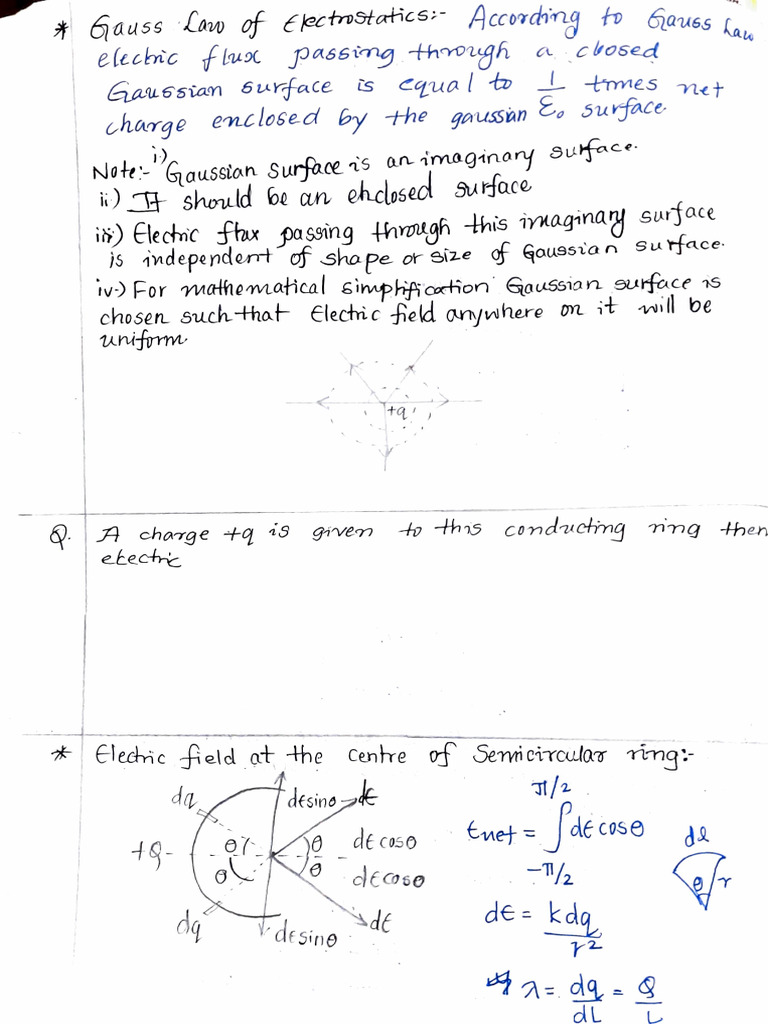 * Gauss Law of Electrostatics:- According to Gauss Law
electric flux passing through a closed
Gaussian surface is equal to 1/ε₀ times net
charge enclosed by the gaussian surface.
Note:- i) Gaussian surface is an imaginary surface.
ii) It should be an enclosed surface
iii) Electric flux passing through this imaginary surface
is independent of shape or size of Gaussian surface.
iv) For mathematical simplification Gaussian surface is
chosen such that Electric field anywhere on it will be
uniform.
+q
Q. A charge +q is given to this conducting ring then
electric
* Electric field at the centre of Semicircular ring:-
dq
dEsinθ
dE
+Q
θ
θ
θ
θ
dEcosθ
dEcosθ
dq
dEsinθ
dE
π/2
Enet = ∫dEcosθ
-π/2
dl
θ
r
dE = kdq/r²
λ = dq/dL = Q/L